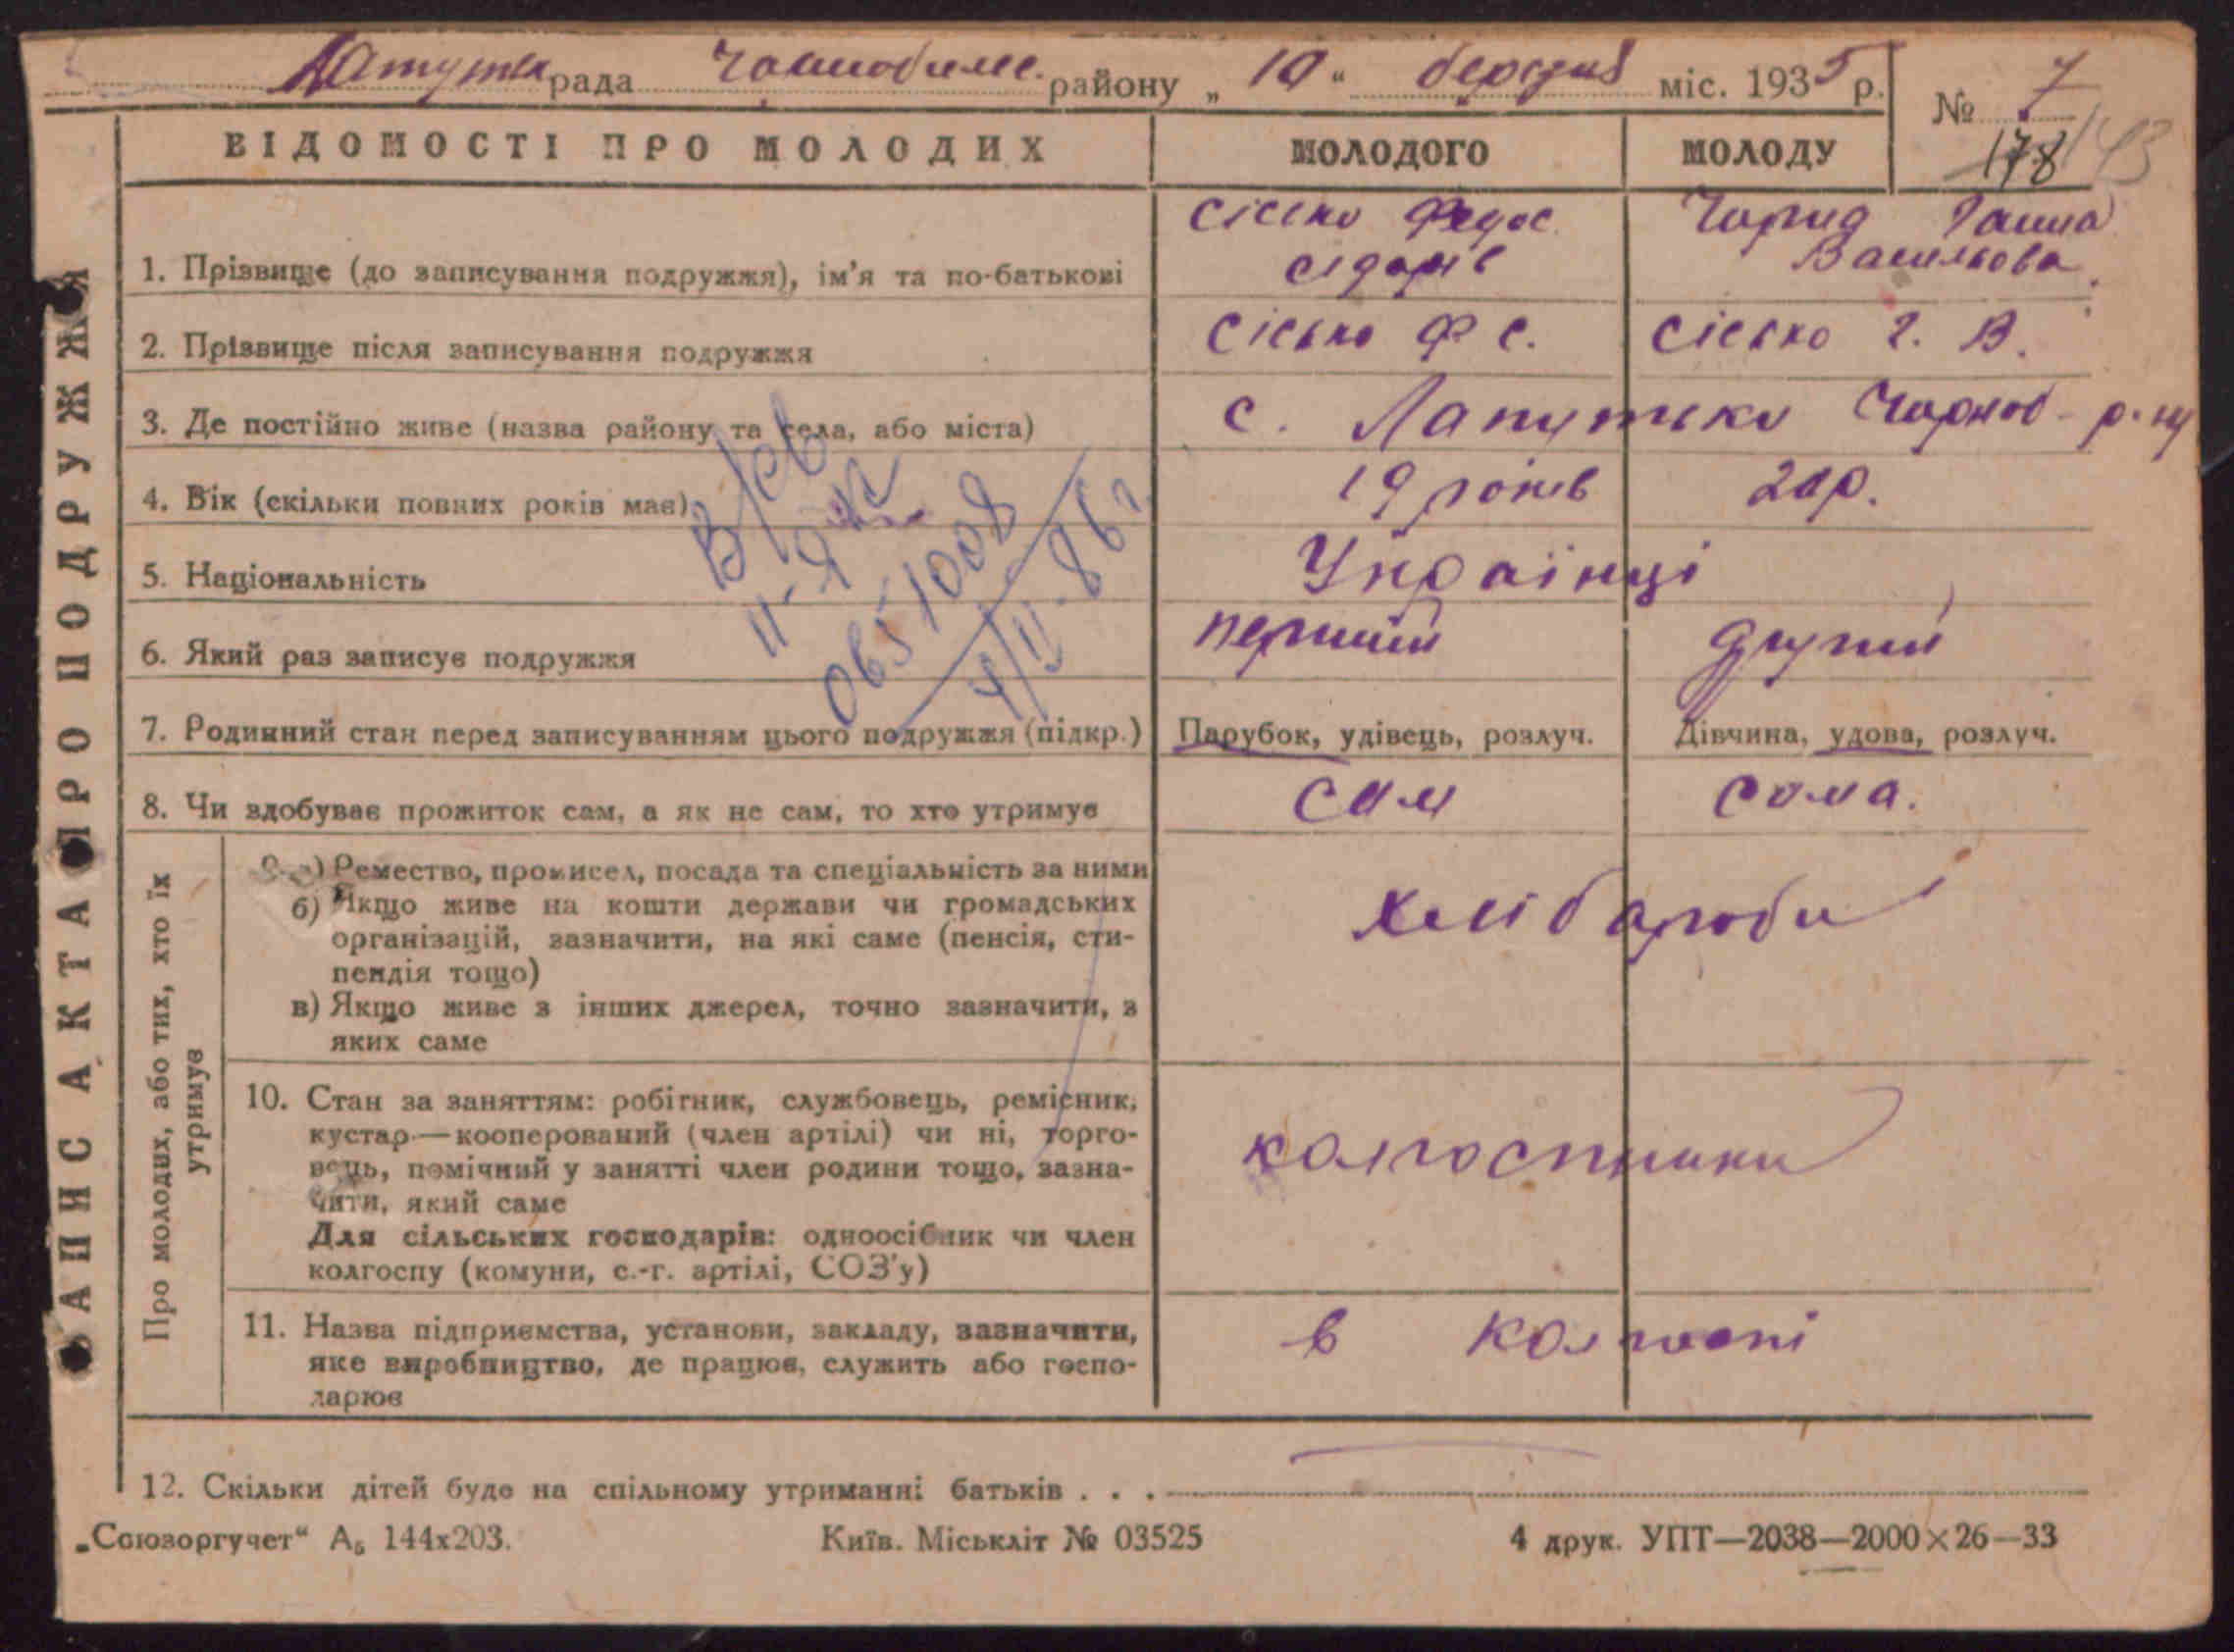 Лапутьк рада Чорнобильс. району „ 10 “ березня міс. 1935 р.
№ 7
178/43
ЗАПИС АКТА ПРО ПОДРУЖЖЯ
ВІДОМОСТІ ПРО МОЛОДИХ
МОЛОДОГО
МОЛОДУ
1. Прізвище (до записування подружжя), ім’я та по-батькові
Сісько Федос.
Сідорів
Ганна
Васильова.
2. Прізвище після записування подружжя
Сісько Ф С.
Сісько Г. В.
3. Де постійно живе (назва району та села, або міста)
с. Лапутьки Чорноб - р-ну
4. Вік (скільки повних років має)
19 років
20 р.
5. Національність
Українці
6. Який раз записує подружжя
перший
другий
7. Родинний стан перед записуванням цього подружжя (підкр.)
Парубок, удівець, розлуч.
Дівчина, удова, розлуч.
8. Чи здобуває прожиток сам, а як не сам, то хто утримує
сам
сама.
Про молодих, або тих, хто їх
утримує
9. а) Ремество, промисел, посада та спеціальність за ними
б) Якщо живе на кошти держави чи громадських
організацій, зазначити, на які саме (пенсія, сти-
пендія тощо)
в) Якщо живе з інших джерел, точно зазначити, з
яких саме
хлібароби
10. Стан за заняттям: робітник, службовець, ремісник,
кустар—кооперований (член артілі) чи ні, торго-
вець, помічний у занятті член родини тощо, зазна-
чити, який саме
Для сільських господарів: одноосібник чи член
колгоспу (комуни, с.-г. артілі, СОЗ’у)
колгоспники
11. Назва підприємства, установи, закладу, зазначити,
яке виробництво, де працює, служить або госпо-
дарює
в колгоспі
В/св
II-Я
0651008
4/II-86 г.
12. Скільки дітей буде на спільному утриманні батьків . . .
„Союзоргучет“ А₅ 144х203.
Київ. Міськліт № 03525
4 друк. УПТ—2038—2000×26—33